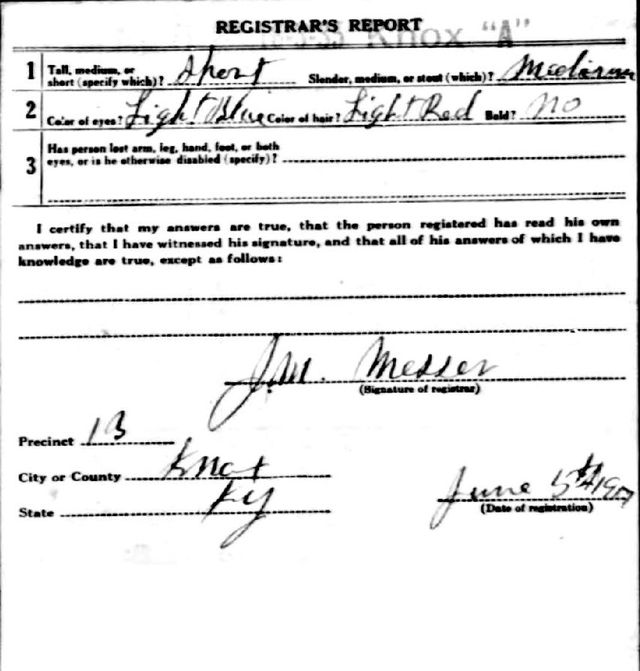 REGISTRAR'S REPORT
Knox "A"
1 Tall, medium, or short (specify which)? Short Slender, medium, or stout (which)? Medium
2 Color of eyes? Light Blue Color of hair? Light Red Bald? No
3 Has person lost arm, leg, hand, foot, or both
eyes, or is he otherwise disabled (specify)?
I certify that my answers are true, that the person registered has read his own
answers, that I have witnessed his signature, and that all of his answers of which I have
knowledge are true, except as follows:
J.M. Messer
(Signature of registrar)
Precinct 13
City or County Knox
State Ky
June 5th 1917
(Date of registration)